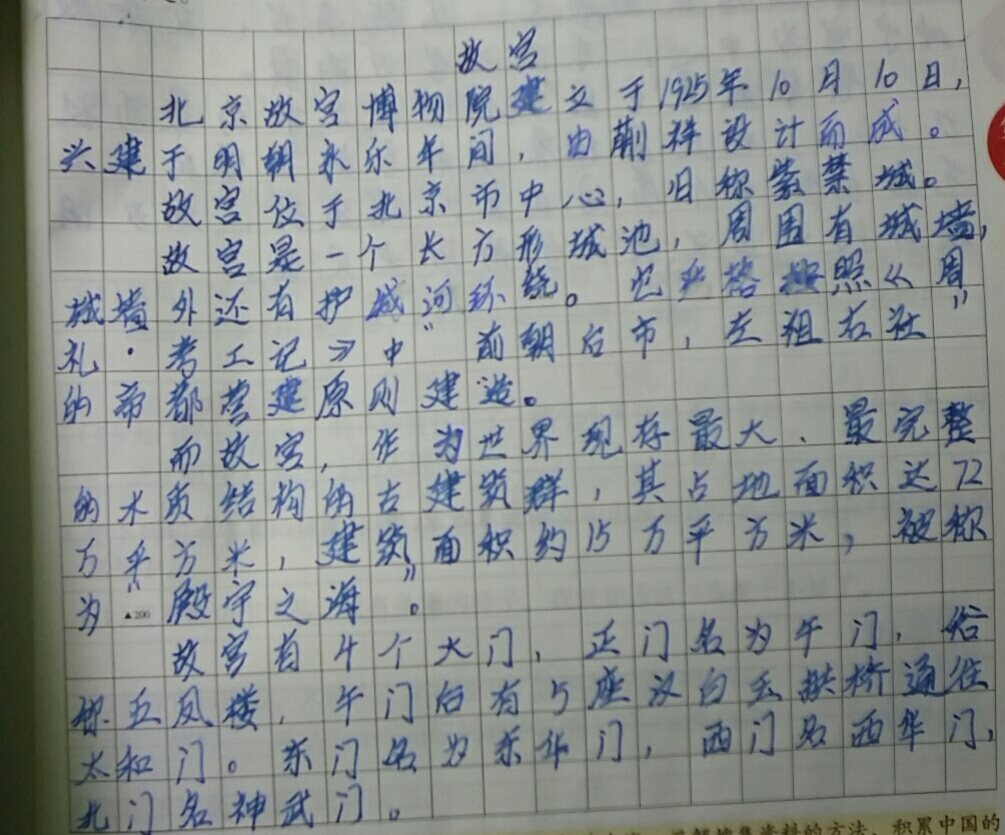 故宫
北京故宫博物院建立于1925年10月10日，
兴建于明朝永乐年间，由蒯祥设计而成。
故宫位于北京市中心，旧称紫禁城。
故宫是一个长方形城池，周围有城墙，
城墙外还有护城河环绕。它严格按照《周
礼·考工记》中"前朝后市，左祖右社"
的帝都营建原则建造。
而故宫，作为世界现存最大、最完整
的木质结构的古建筑群，其占地面积达72
万平方米，建筑面积约15万平方米，被称
为"殿宇之海"。
▲200
故宫有4个大门，正门名为午门，俗
称五凤楼，午门后有5座汉白玉拱桥通往
太和门。东门名为东华门，西门名西华门，
北门名神武门。
积累中国的